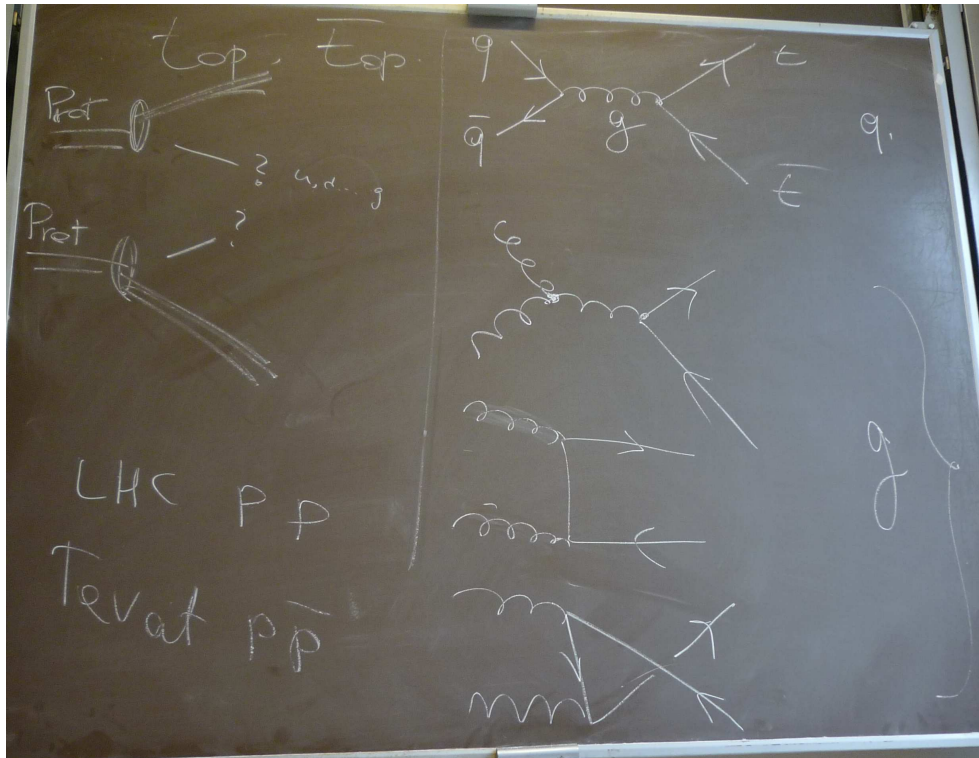 top, t̅o̅p̅.
Prot
? u, d... g
Prot
?
LHC p p
Tevat p p̅
q
q̅
g
t
t̅
q,
g